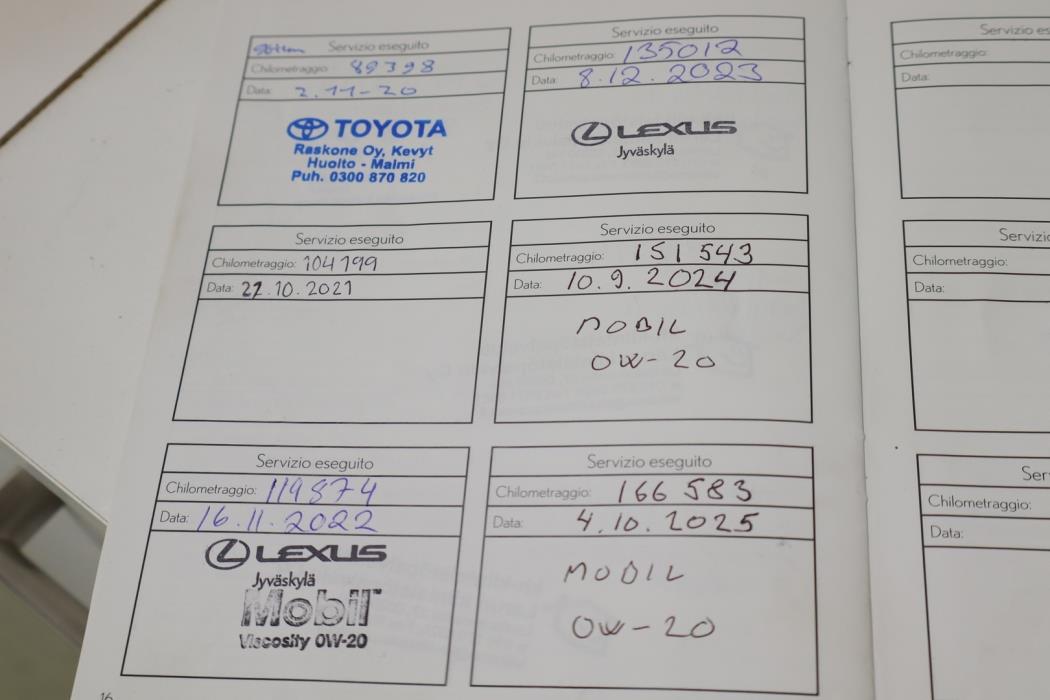 90tkm Servizio eseguito
Chilometraggio: 89398
Data: 2.11-20
TOYOTA
Raskone Oy, Kevyt
Huolto - Malmi
Puh. 0300 870 820
Servizio eseguito
Chilometraggio: 104199
Data: 22.10.2021
Servizio eseguito
Chilometraggio: 119874
Data: 16.11.2022
LEXUS
Jyväskylä
Mobil
Viscosity 0W-20
16
Servizio eseguito
Chilometraggio: 135012
Data: 8.12.2023
LEXUS
Jyväskylä
Servizio eseguito
Chilometraggio: 151 543
Data: 10.9.2024
MOBIL
0W-20
Servizio eseguito
Chilometraggio: 166 583
Data: 4.10.2025
MOBIL
0W-20
Servizio es
Chilometraggio:
Data:
Servizi
Chilometraggio:
Data:
Ser
Chilometraggio:
Data: